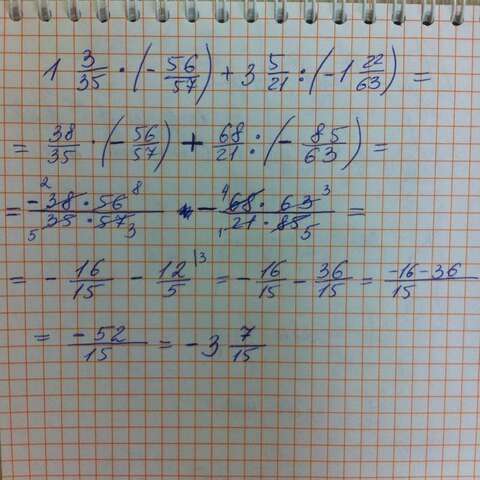 1 3/35 · (- 56/57) + 3 5/21 : (-1 22/63) =
= 38/35 · (- 56/57) + 68/21 : (- 85/63) =
= - 38² · 56⁸ / ₅35 · 57₃ - ⁴68 · 63³ / ₁21 · 85₅ =
= - 16/15 - 12/5 \3 = - 16/15 - 36/15 = -16-36/15
= -52/15 = -3 7/15